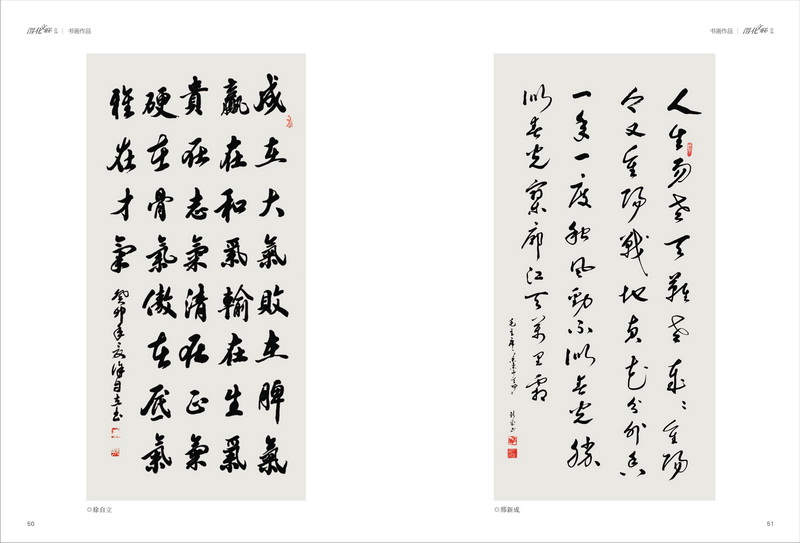 书画作品
书画作品
成在大氣敗在脾氣
贏在和氣輸在生氣
貴在志氣清在正氣
硬在骨氣傲在底氣
雅在才氣
癸卯年夏徐自立书
◎徐自立
50
人生易老天難老歲〻重陽
今又重陽戰地黃花分外香
一年一度秋風勁不似春光勝
似春光寥廓江天萬里霜
◎邢新成
51